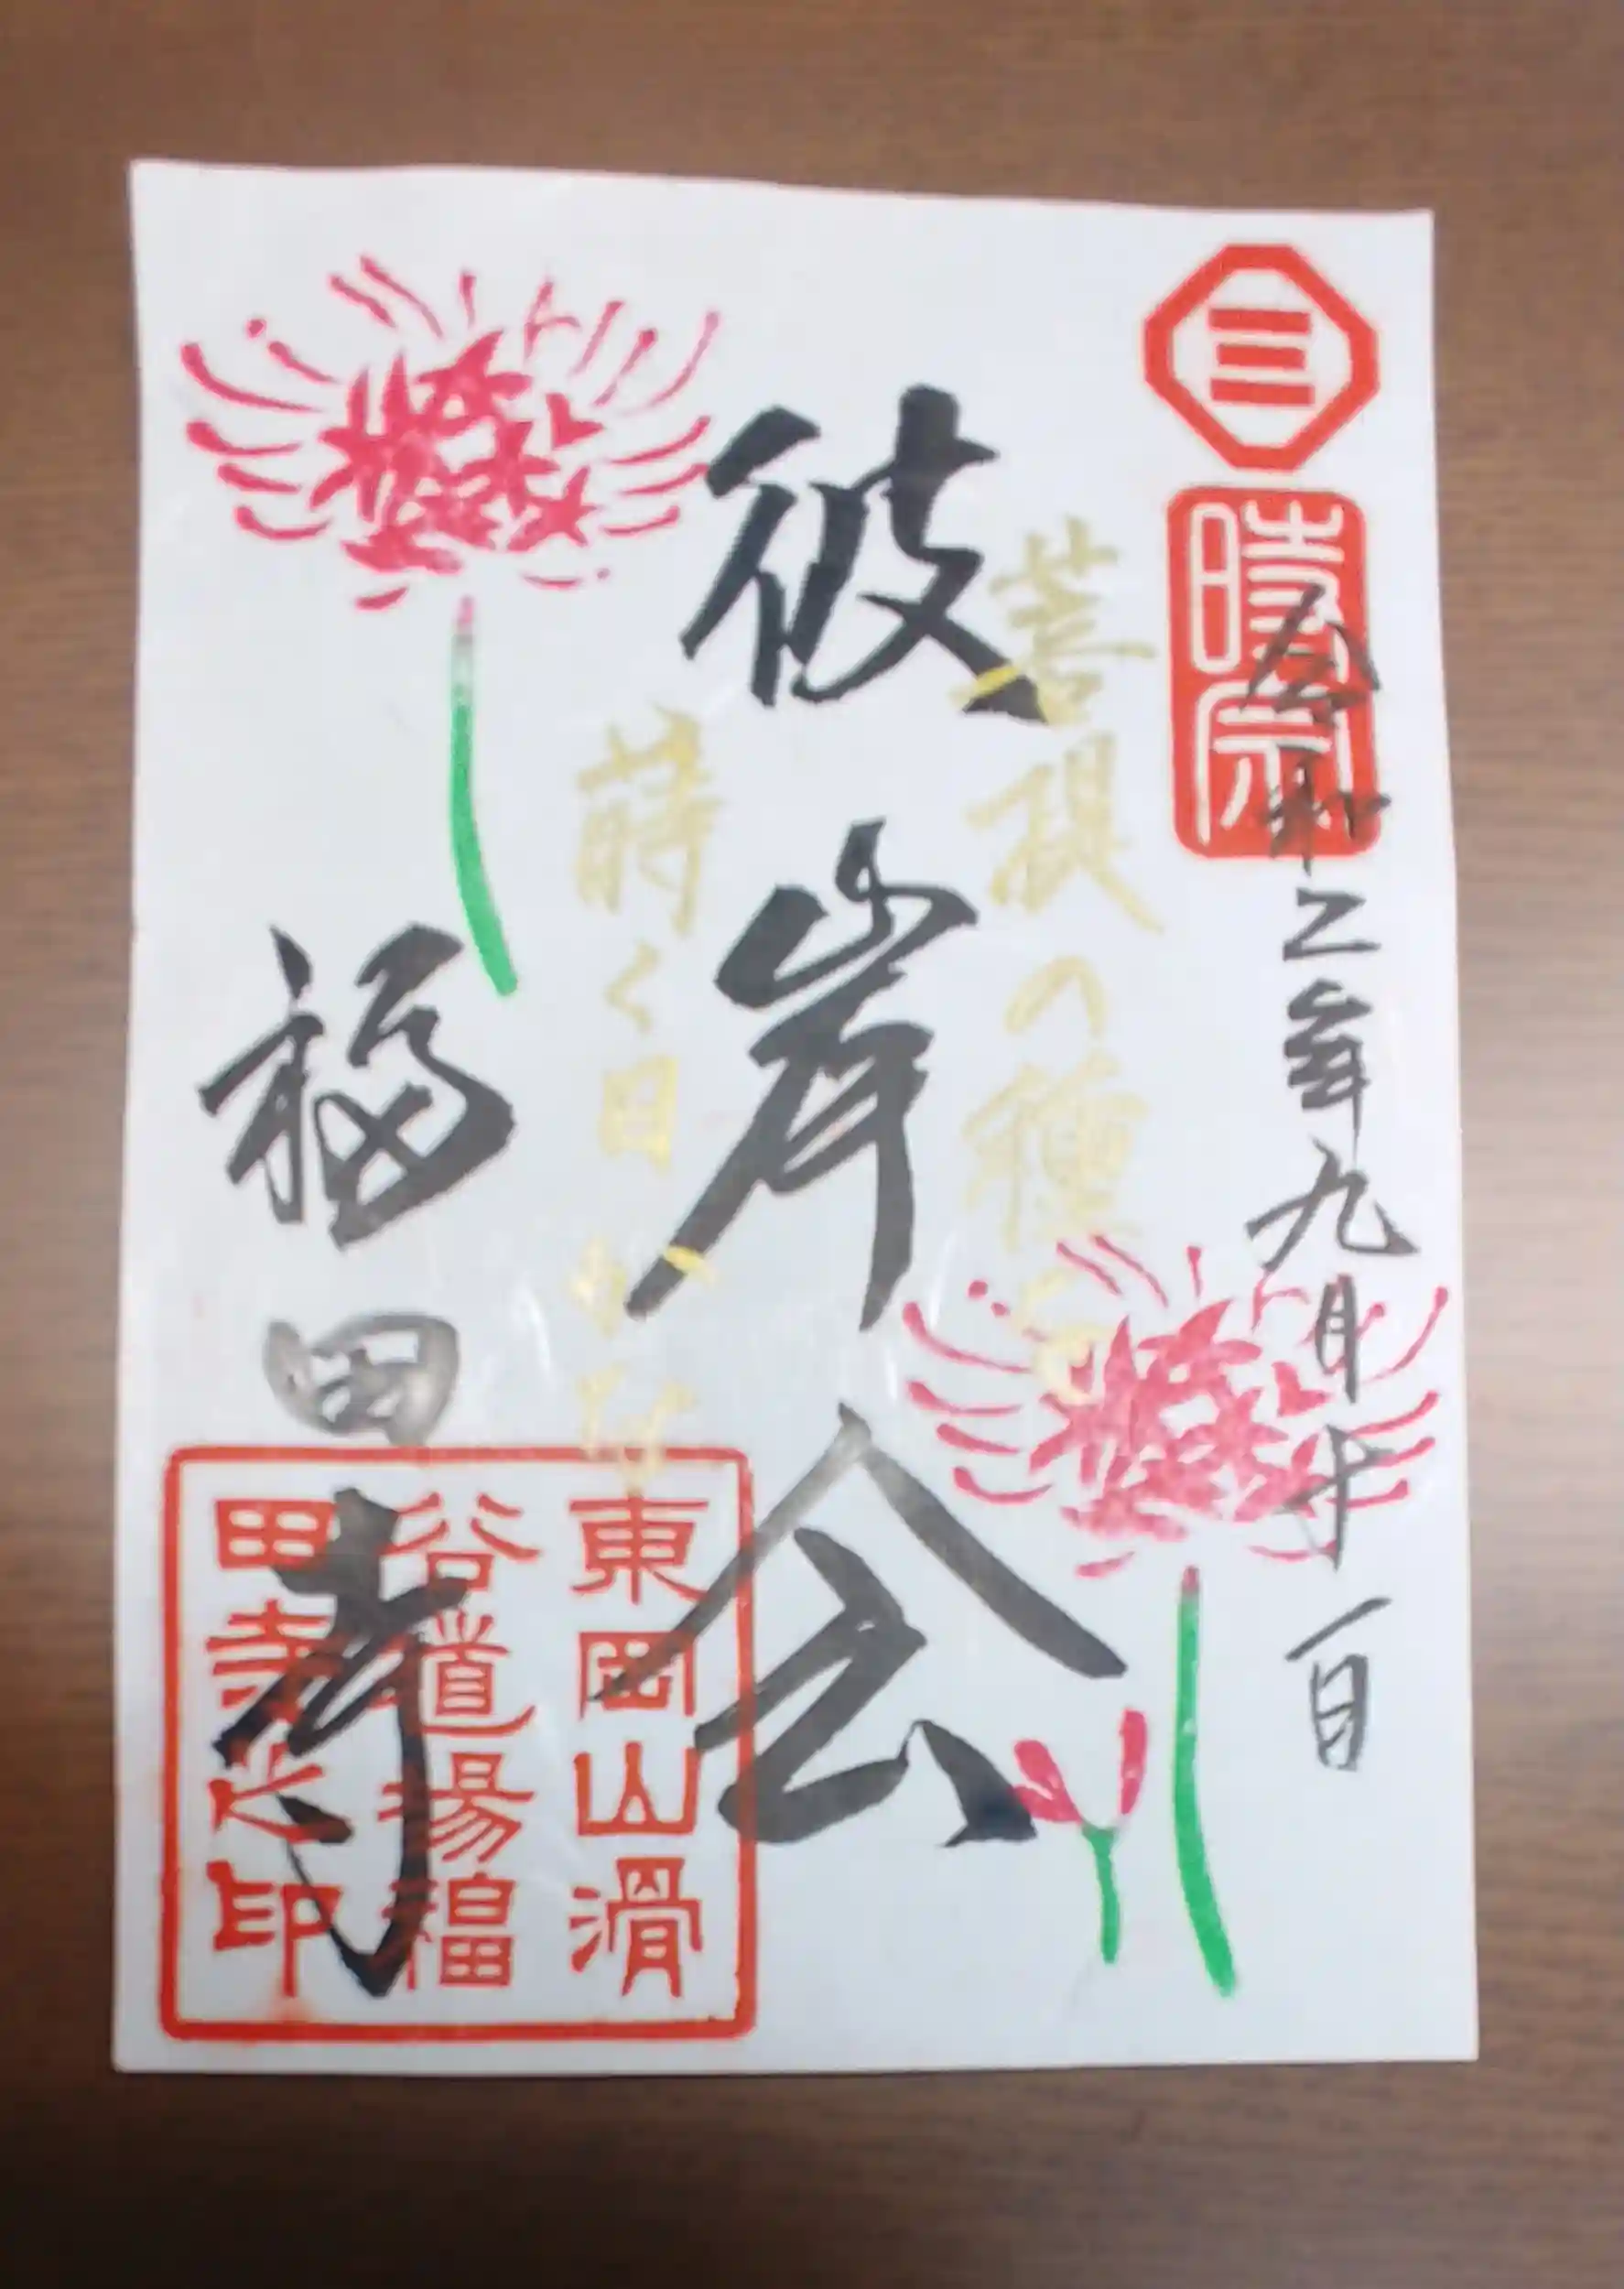 三
時宗
令和二年九月十一日
菩提の種を
彼岸会
蒔く日かな
福田寺
東岡山滑
谷道場福
田寺之印